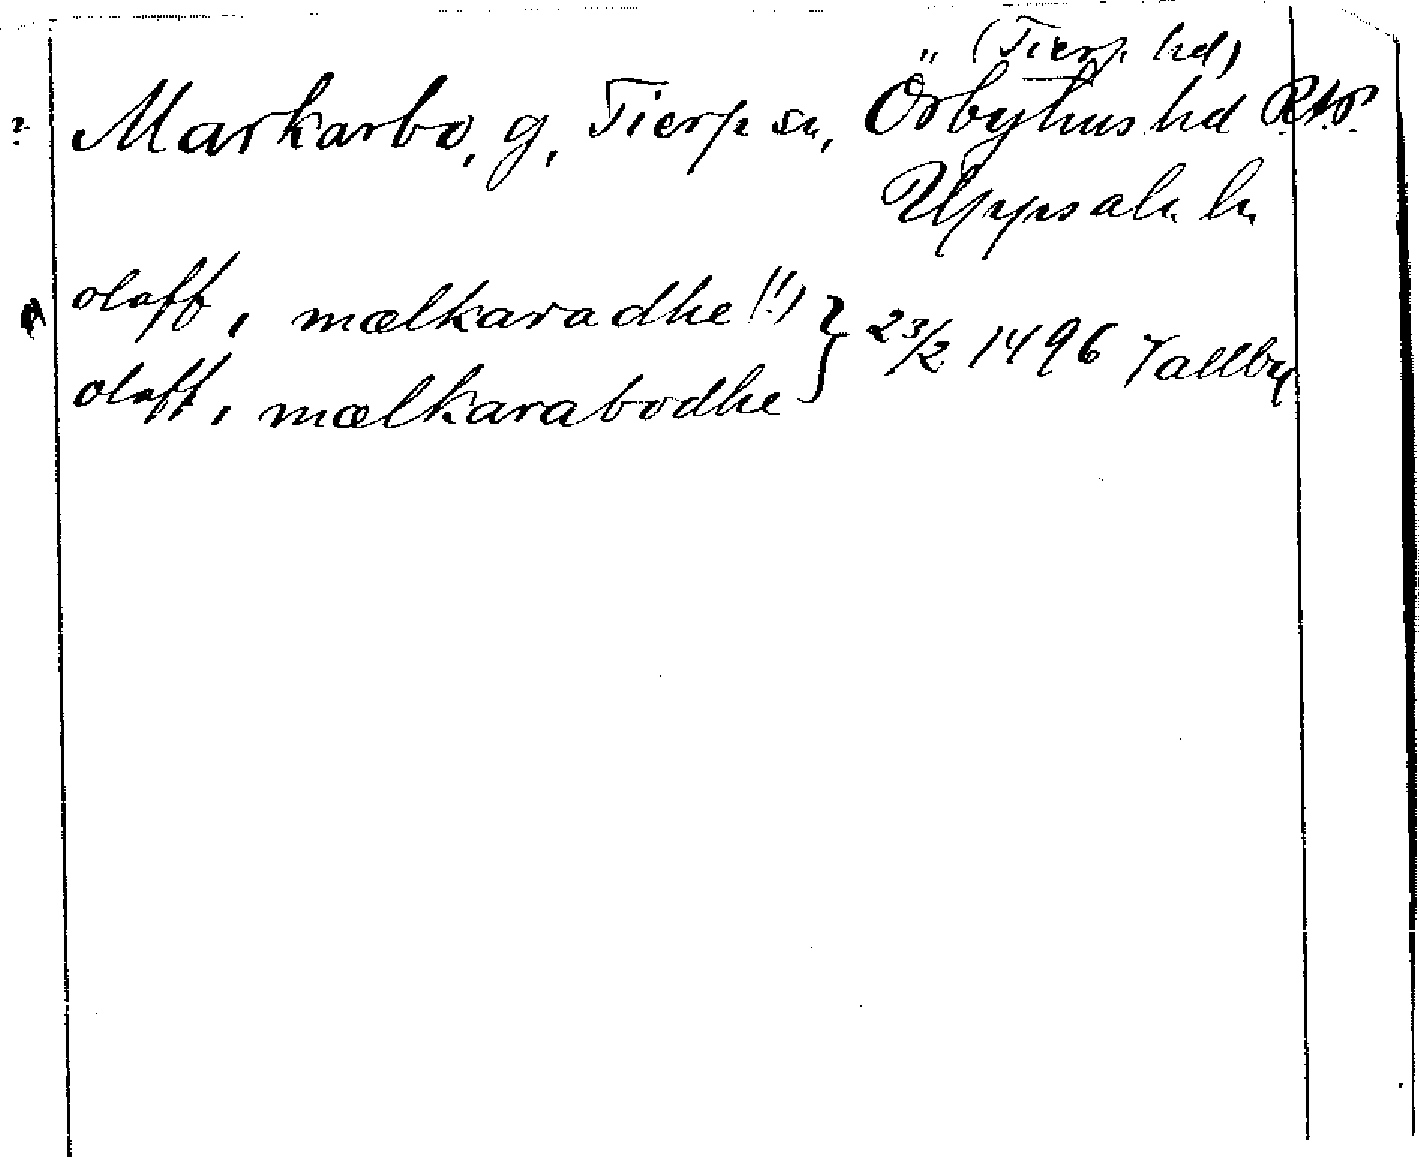 (Tierp hd)
? Markarbo, g, Tierp sn, Örbyhus hd
Uppsala ln
olaff, i mælkaradhe (!)
23/2 1496 Vallby
olaff, i mælkarabodhe